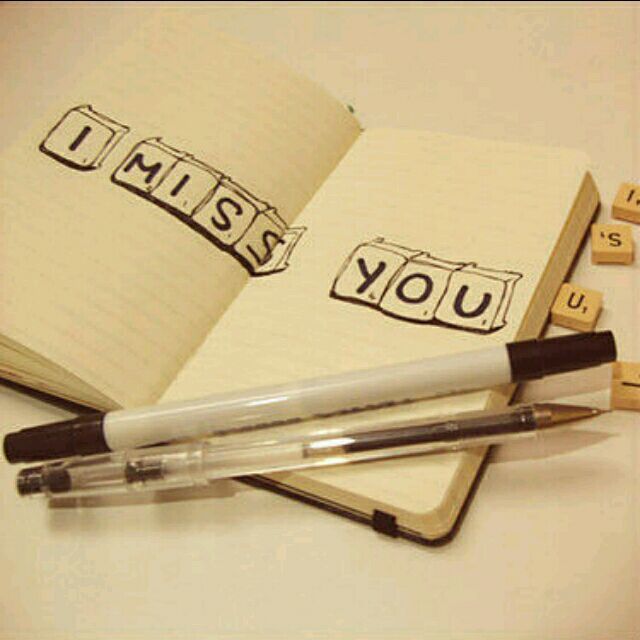 I MISS YOU
S
U